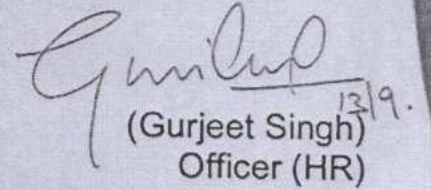 13/9.
(Gurjeet Singh)
Officer (HR)